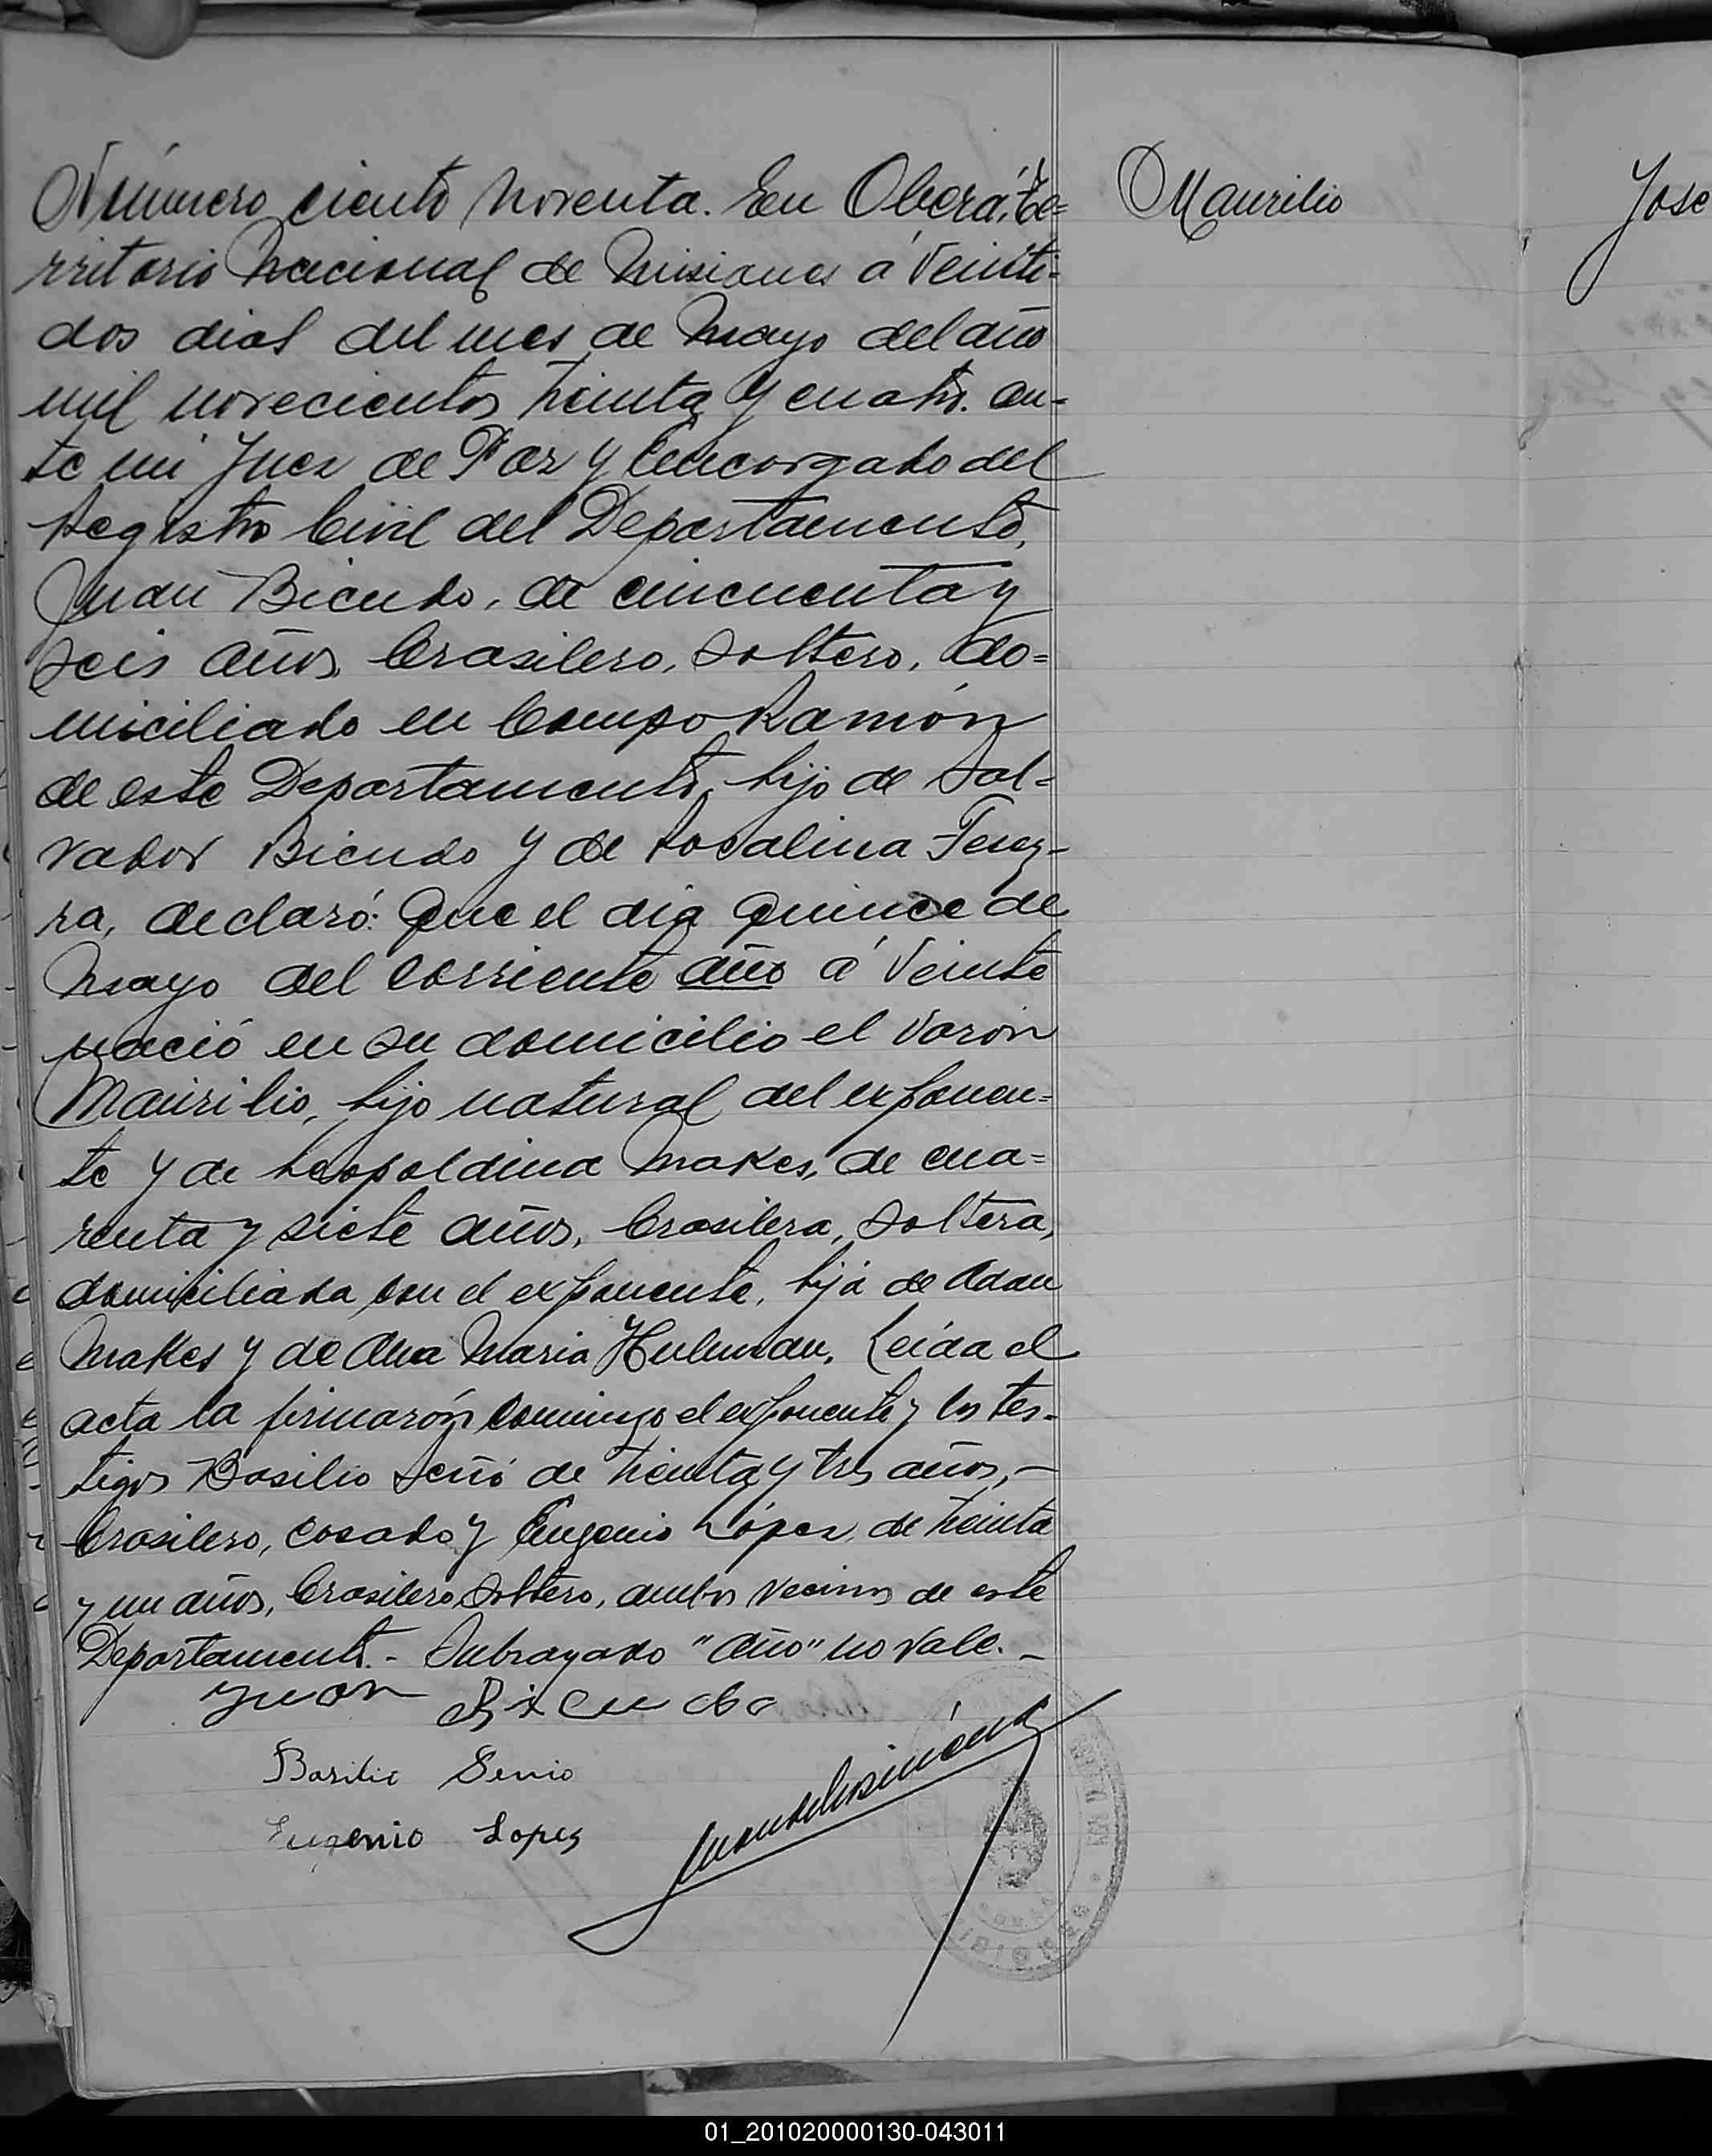 Número ciento noventa. En Oberá, Te=
rritorio Nacional de Misiones á veinti-
dos dias del mes de Mayo del año
mil novecientos treinta y cuatro. an-
te mi Juez de Paz y Encargado del
Registro Civil del Departamento,
Juan Bicudo, de cincuenta y
seis años, brasilero, soltero, do=
miciliado en Campo Ramón
de este Departamento, hijo de Sal-
vador Bicudo y de Rosalina
ra, declaró: Que el dia quince de
Mayo del corriente año á veinte
nació en su domicilio el varón
Maurilio, hijo natural del exponen=
te y de Leopoldina Makes, de cua=
renta y siete años, brasilera, soltera,
domiciliada con el exponente, hija de Adan
Makes y de Ana Maria Hulman. Leída el
acta la firmarón conmigo el exponente y los tes-
tigos Basilio Señó de treinta y tres años,-
brasilero, casado y Eugenio López, de treinta
y un años, brasilero, soltero, ambos vecinos de este
Departamento.- Subrayado "año" no vale.-
Juan Bicudo
Basilio Senio
Eugenio Lopes
Maurilio
Jose
01_201020000130-043011